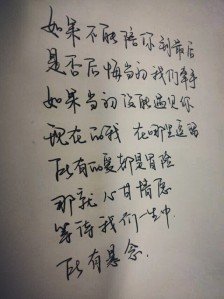 如果不能陪你到最后
是否后悔当初我们牵手
如果当初没能遇见你
现在的我 在哪里逗留
所有的爱都是冒险
那就心甘情愿
等待我们一生中
所有悬念.